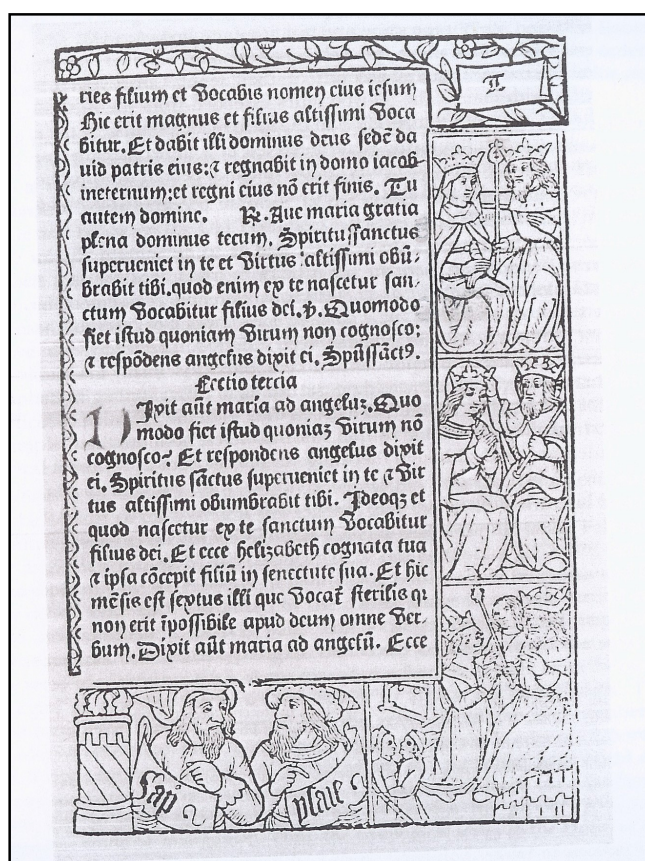 ries filium et Vocabis nomen eius iesum
Hic erit magnus et filius altissimi Voca
bitur. Et dabit illi dominus deus sedē da
uid patris eius: ⁊ regnabit in domo iacob
ineternum: et regni eius nō erit finis. Tu
autem domine. ℟. Aue maria gratia
plena dominus tecum. Spiritussanctus
superueniet in te et Virtus altissimi obū-
brabit tibi. quod enim ex te nascetur san-
ctum Vocabitur filius dei. ℣. Quomodo
fiet istud quoniam Virum non cognosco:
⁊ respōdens angelus dixit ei. Spūssāctꝰ.
Lectio tercia
Dixit aūt maria ad angeluz. Quo
modo fiet istud quoniaz Virum nō
cognosco? Et respondens angelus dixit
ei. Spiritus sāctus superueniet in te ⁊ Vir
tus altissimi obumbrabit tibi. Ideoqz et
quod nascetur ex te sanctum Vocabitur
filius dei. Et ecce helizabeth cognata tua
⁊ ipsa cōcepit filiū in senectute sua. Et hic
mēsis est sextus illi que Vocat̄ sterilis qr
non erit īpossibile apud deum omne Ver-
bum. Dixit aūt maria ad angelū. Ecce
Sap ⁊
plaie ⁊